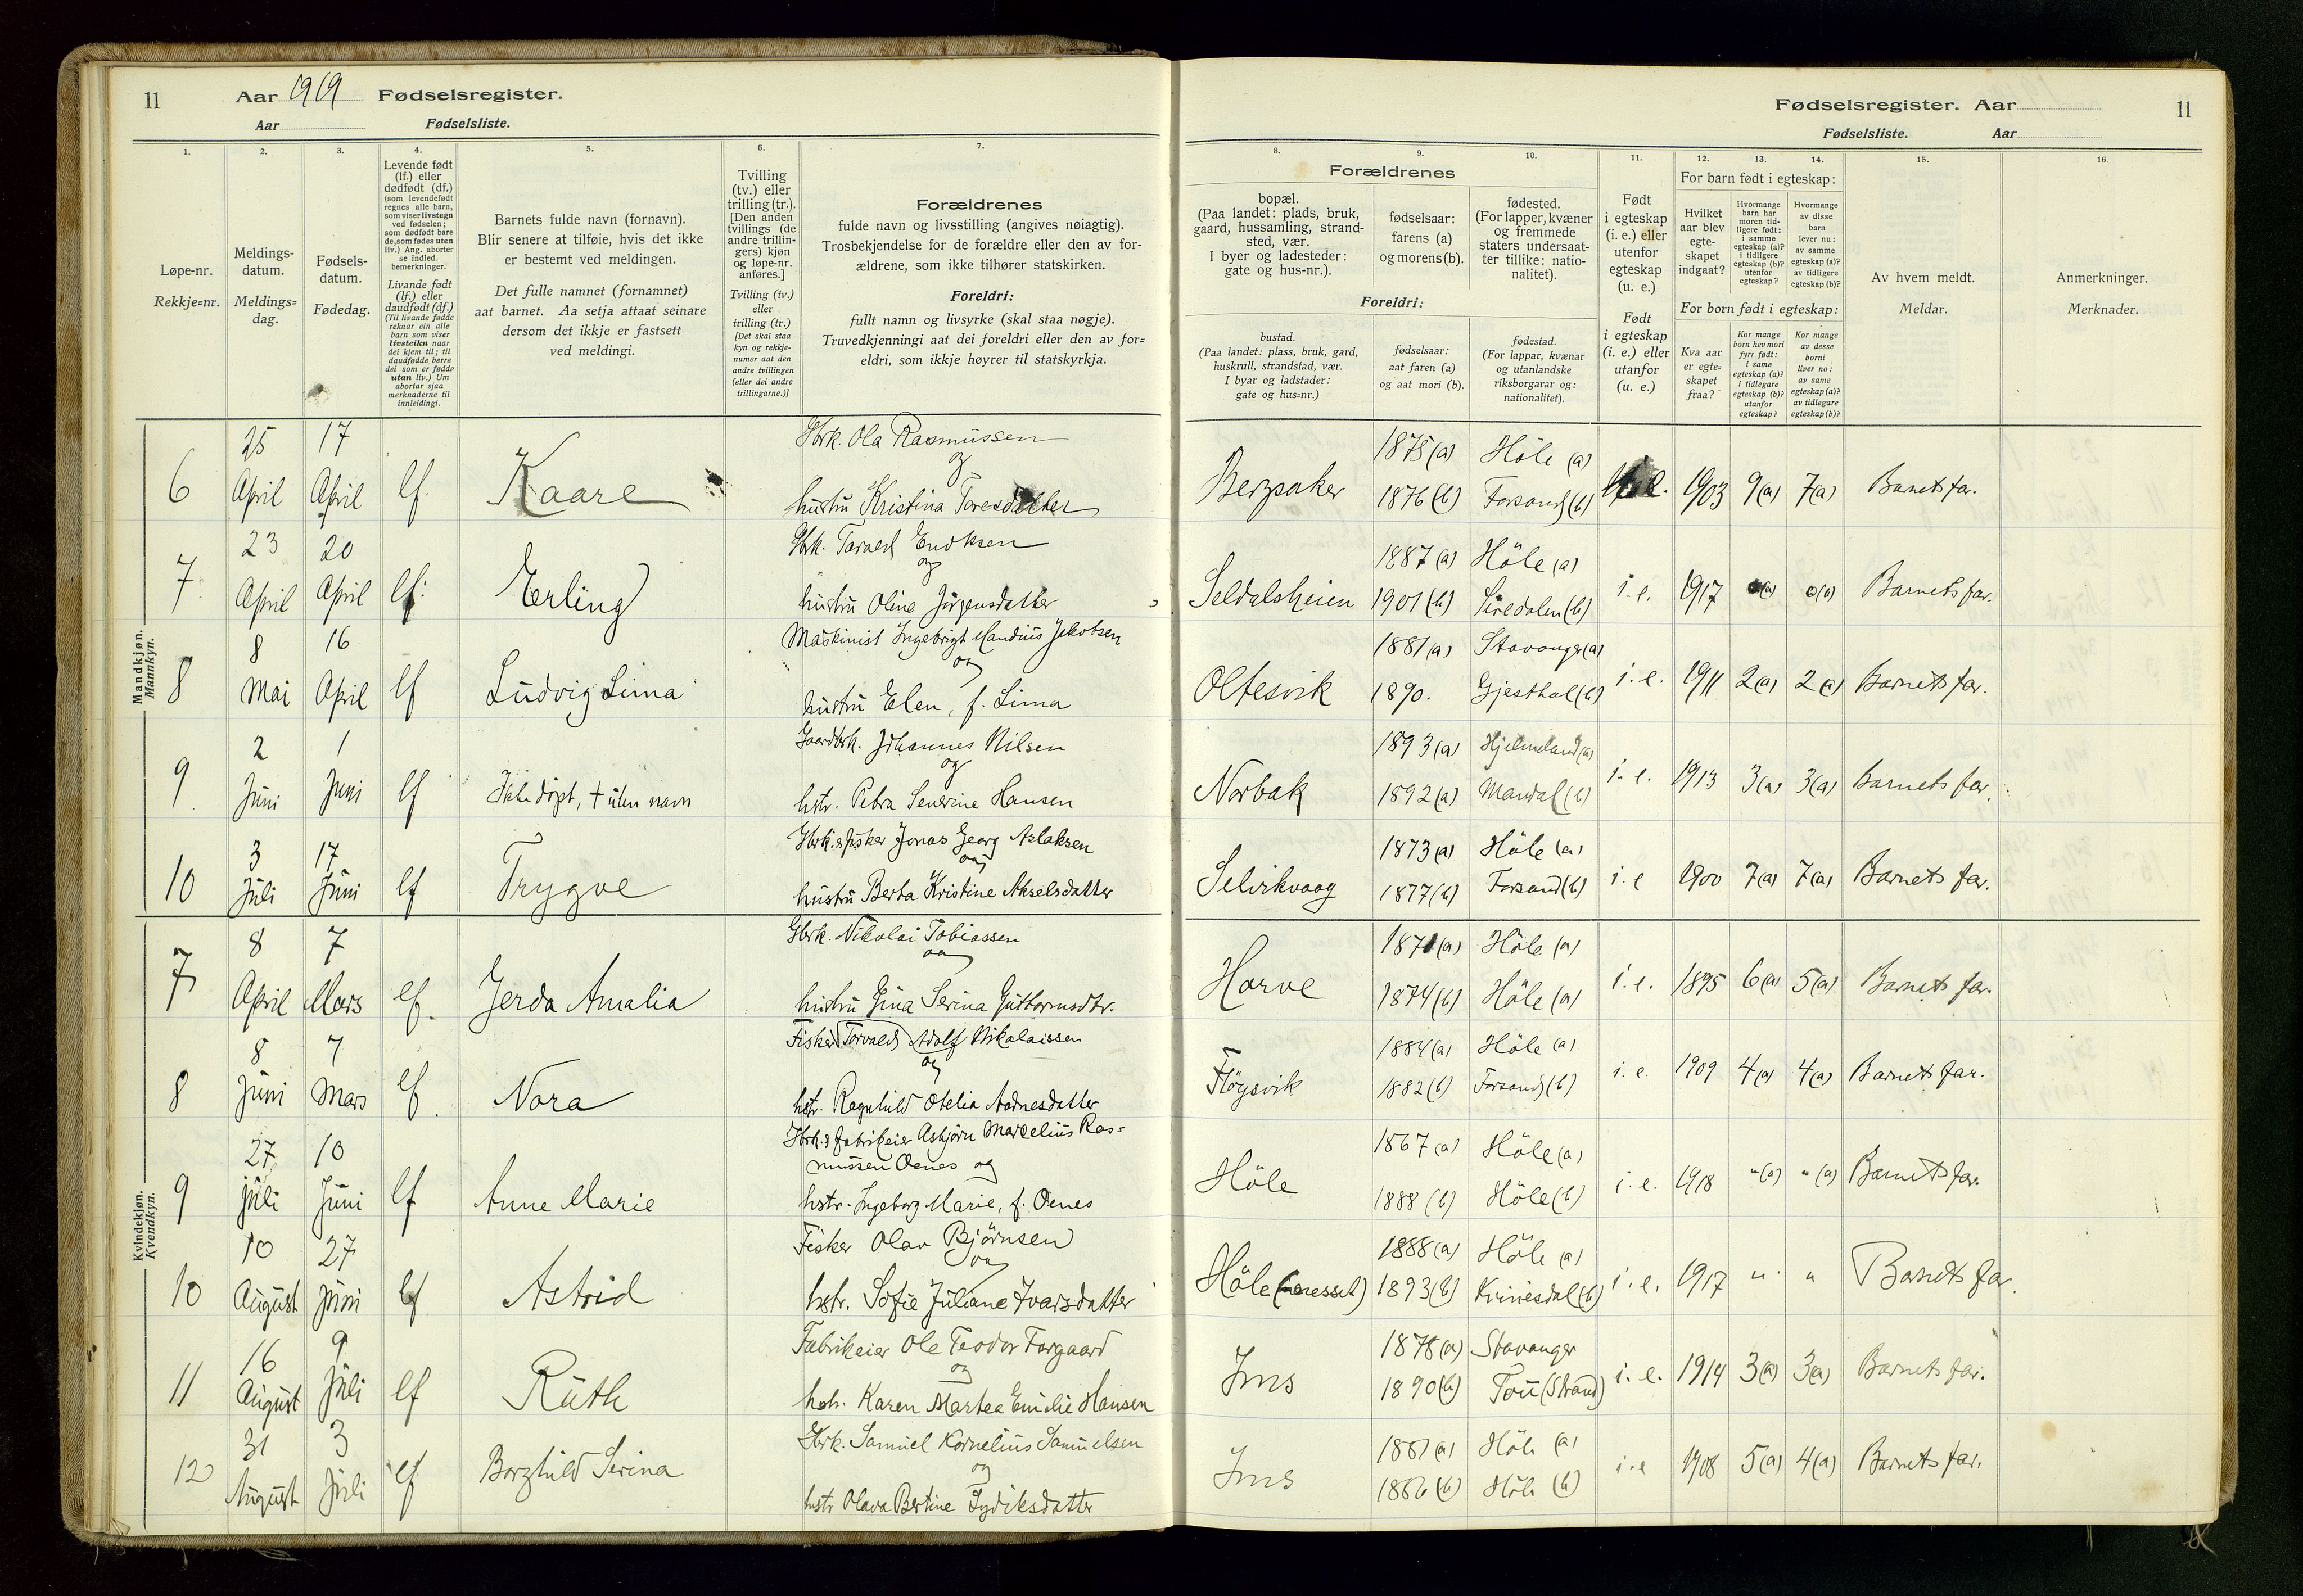 11 Aar 1919 Fødselsregister.
Aar Fødselsliste.
Fødselsregister. Aar 11
Fødselsliste. Aar
1. 2. 3. 4. 5. 6. 7.
Løpe-nr.
Rekkje=nr.
Meldings-
datum.
Meldings=
dag.
Fødsels-
datum.
Fødedag.
Levende født
(lf.) eller
dødfødt (df.)
(som levendefødt
regnes alle barn,
som viser livstegn
ved fødselen;
som dødfødt bare
de, som fødes uten
liv.) Ang. aborter
se indled.
bemerkninger.
Livande født
(lf.) eller
daudfødt (df.)
(Til livande fødde
reknar ein alle
barn som viser
livsteikn naar
dei kjem til; til
daudfødde berre
dei som er fødde
utan liv.) Um
abortar sjaa
merknaderne til
innleidingi.
Barnets fulde navn (fornavn).
Blir senere at tilføie, hvis det ikke
er bestemt ved meldingen.
Det fulle namnet (fornamnet)
aat barnet. Aa setja attaat seinare
dersom det ikkje er fastsett
ved meldingi.
Tvilling
(tv.) eller
trilling (tr.).
[Den anden
tvillings (de
andre trillin-
gers) kjøn
og løpe-nr.
anføres.]
Tvilling (tv.)
eller
trilling (tr.)
[Det skal staa
kyn og rekkje-
numer aat den
andre tvillingen
(eller dei andre
trillingarne.)]
Forældrenes
fulde navn og livsstilling (angives nøiagtig).
Trosbekjendelse for de forældre eller den av for-
ældrene, som ikke tilhører statskirken.
Foreldri:
fullt namn og livsyrke (skal staa nøgje).
Truvedkjenningi aat dei foreldri eller den av for=
eldri, som ikkje høyrer til statskyrkja.
8. 9. 10. 11. 12. 13. 14. 15. 16.
Forældrenes
bopæl.
(Paa landet: plads, bruk,
gaard, hussamling, strand-
sted, vær.
I byer og ladesteder:
gate og hus-nr.).
fødselsaar:
farens (a)
og morens (b).
fødested.
(For lapper, kvæner
og fremmede
staters undersaat-
ter tillike: natio-
nalitet).
Foreldri:
bustad.
(Paa landet: plass, bruk, gard,
huskrull, strandstad, vær.
I byar og ladstader:
gate og hus=nr.)
fødselsaar:
aat faren (a)
og aat mori (b).
fødestad.
(For lappar, kvænar
og utanlandske
riksborgarar og:
nationalitet).
Født
i egteskap
(i. e.) eller
utenfor
egteskap
(u. e.)
Født
i egteskap
(i. e.) eller
utanfor
(u. e.)
For barn født i egteskap:
Hvilket
aar blev
egte-
skapet
indgaat?
Hvormange
barn har
moren tid-
ligere født:
i samme
egteskap (a)?
i tidligere
egteskap (b)?
utenfor
egteskap?
Hvormange
av disse
barn
lever nu:
av samme
egteskap (a)?
av tidligere
egteskap (b)?
For born født i egteskap:
Kva aar
er egte=
skapet
fraa?
Kor mange
born hev mori
fyrr født:
i same
egteskap (a)?
i tidlegare
egteskap (b)?
utanfor
egteskap?
Kor mange
av desse
borni
liver no:
av same
egteskap (a)?
av tidlegare
egteskap (b)?
Av hvem meldt.
Meldar.
Anmerkninger.
Merknader.
Mandkjøn.
Mannkyn.
6 25 April 17 April lf. Kaare Gbrk. Ola Rasmussen
og
hustru Kristina Toresdatter
1875 (a) Höle (a)
1876 (b) Forsand (b) 1903 9(a) 7(a) Barnets far.
7 23 April 20 April lf. Erling
og
hustru Oline Jørgensdatter
Seldalsheien 1887 (a) Höle (a)
1901 (b) Siredalen (b) i. e. 1917 0(a) Barnets far.
8 8 Mai 16 April lf Ludvig Lima Maskinist Ingebrigt Jakobsen
og
hustru Elen, f. Lima
Oltesvik 1881 (a) Stavanger (a)
1890. Gjesthal (b) i. e. 1911 2(a) 2(a) Barnets far.
9 2 Juni 1 Juni lf Ikke döpt, + uten navn Gaardbrk. Johannes Nilsen
og
hstr. Petra Severine Hansen
Norbak 1893 (a) Hjelmeland (a)
1892 (a) Mandal (b) i. e. 1913 3(a) 3(a) Barnets far.
10 3 Juli 17 Juni lf Trygve Gbrk. & fisker Jonas Georg Aslaksen
og
hustru Berta Kristine Akselsdatter
Selvikvaag 1873 (a) Höle (a)
1877 (b) Forsand (b) i. e 1900 7(a) 7(a) Barnets far.
Kvindekjøn.
Kvendkyn.
7 8 April 7 Mars lf. Jerda Amalia Gbrk. Nikolai Tobiassen
og
hustru Gina Serina Guttormsdtr.
Horve 1871 (a) Höle (a)
1874 (b) Höle (a) i. e. 1895 6(a) 5(a) Barnets far.
8 8 Juni 7 Mars lf. Nora Fisker Torvald Adolf Nikolaissen
og
hstr. Ragnhild Otelia Aadnesdatter
Flögsvik 1884 (a) Höle (a)
1882 (b) Forsand (b) i. e. 1909 4(a) 4(a) Barnets far.
9 27 juli 10 Juni lf Anne Marie Gbrk. & fabrikeier Asbjörn Marselius Ras=
mussen Oenes og
hstr. Ingeborg Marie, f. Oenes
Höle 1867 (a) Höle (a)
1888 (b) Höle (b) i. e. 1918 " (a) " (a) Barnets far.
10 10 August 27 Juni lf Astrid Fisker Olav Björnsen
og
hstr. Sofie Juliane Ivarsdatter
Höle 1888 (a) Höle (a)
1893 (b) Kvinesdal (b) i. e. 1917 " " Barnets far.
11 16 August 9 Juli lf Ruth Fabrikeier Ole Teodor Torgaard
og
hstr. Karen Martea Emilie Hansen
Ims 1878 (a) Stavanger
1890 (b) Tou (Strand) i. e. 1914 3(a) 3(a) Barnets far.
12 31 August 3 Juli lf Borghild Serina Gbrk. Samuel Kornelius Samuelsen
og
hstr Olava Bertine Tydiksdatter
Ims 1881 (a) Höle (a)
1886 (b) Höle (b) i. e 1908 5(a) 4(a) Barnets far.